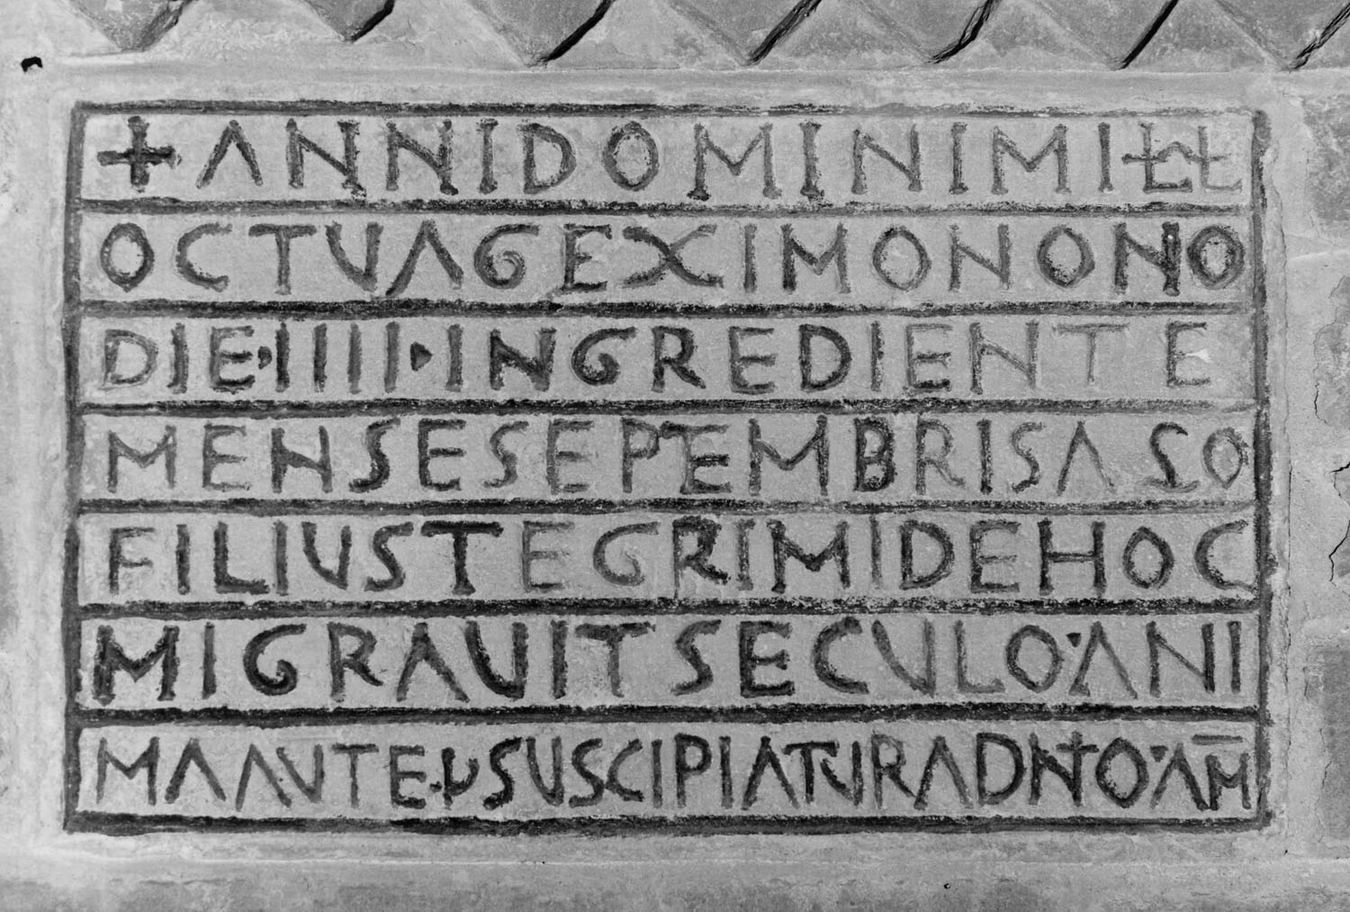 +ANNIDOMINIMILL
OCTUAGEXIMONONO
DIE·IIII·INGREDIENTE
MENSESEPTEMBRISASO
FILIUSTEGRIMIDEHOC
MIGRAVITSECULO·ANI
MAAUTE·PSUSCIPIATURADNO·AM